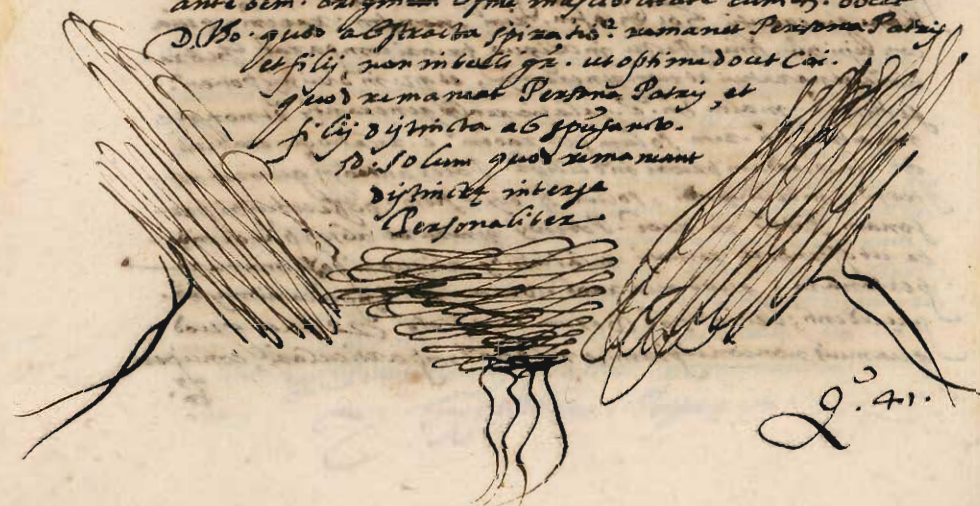 D. Tho. quod abstracta spiratio. remanet Persona Patris
et filij, non in bullis gr. ut optime docet Cai.
quod remaneat Persona Patris, et
filij distincta ab spusancto.
D. Solum quod remaneant
distinctę inter se
Personaliter
Q. 41.